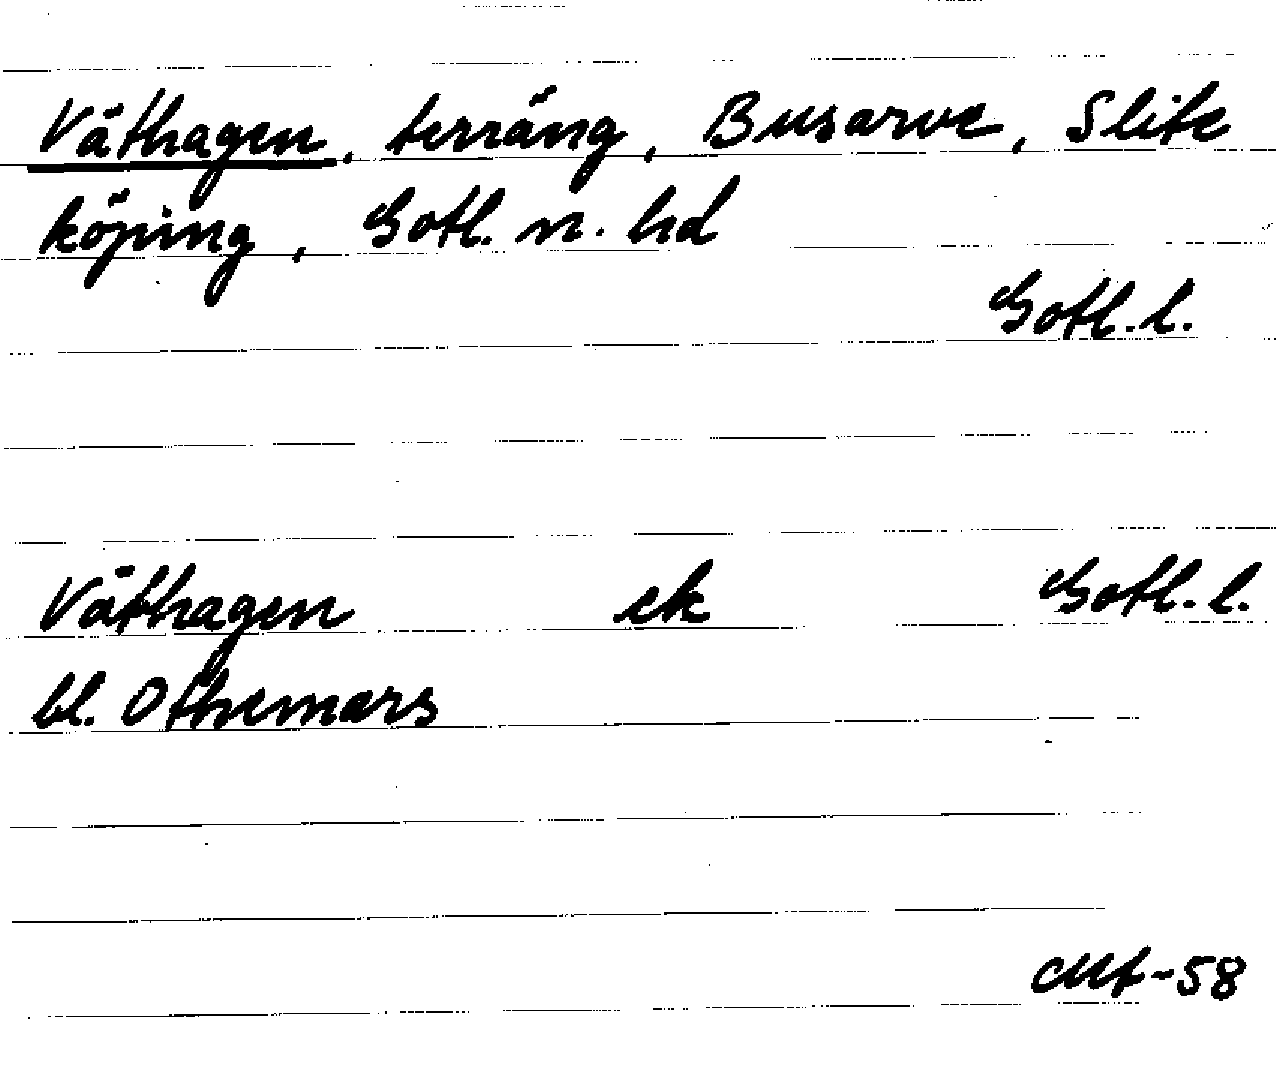 Väthagen, terräng, Busarve, Slite
köping, Gotl. n. hd
Gotl. l.
Väthagen ek Gotl. l.
bl. Othemars
-58